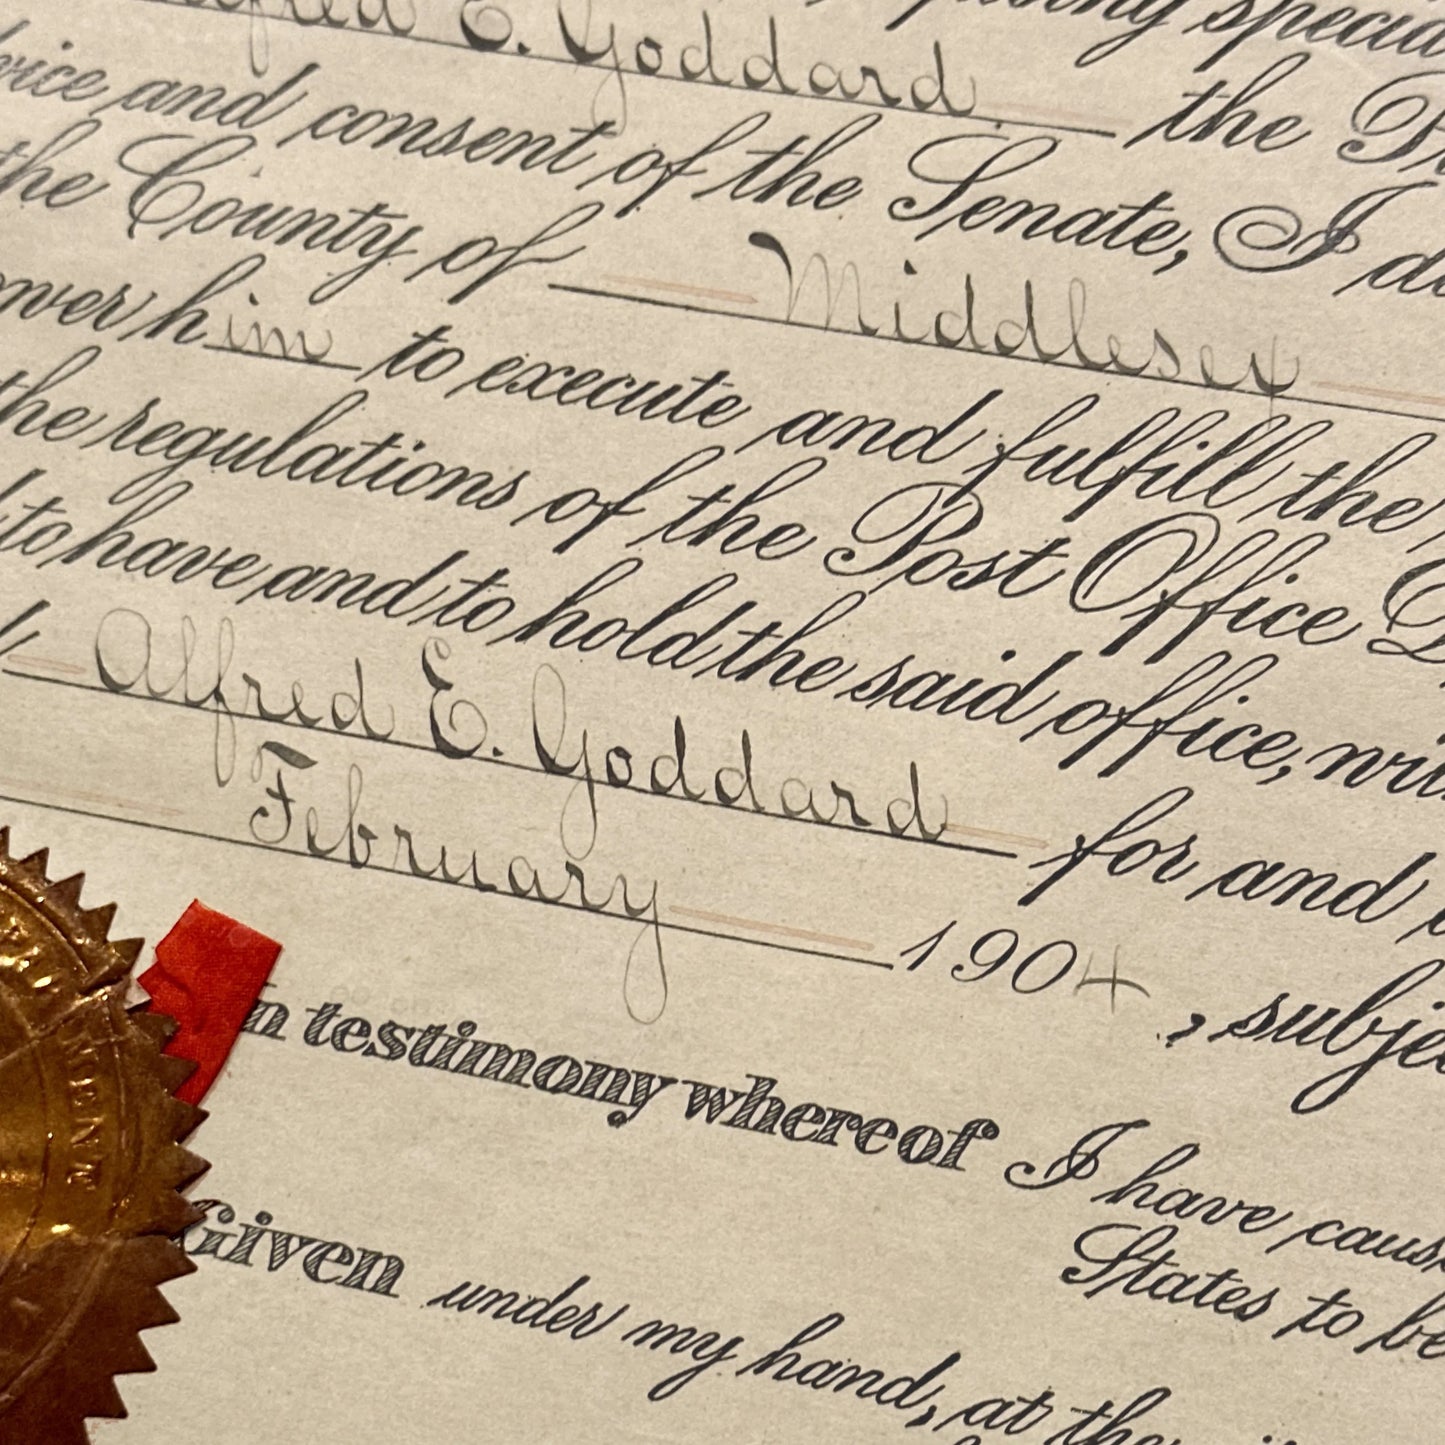 E. Goddard the
and consent of the Senate, I
the County of Middlesex
him to execute and fulfill the
the regulations of the Post Office
to have and to hold the said office,
Alfred E. Goddard for and
February 1904, 
In testimony whereof I have
States to be
Given under my hand, at the
MENT